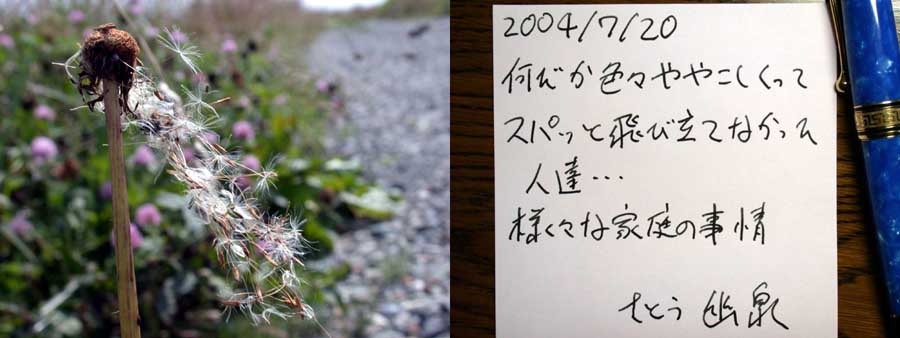 2004/7/20
何だか色々ややこしくって
スパッと飛び立てなかった
人達…
様々な家庭の事情
さとう 幽泉